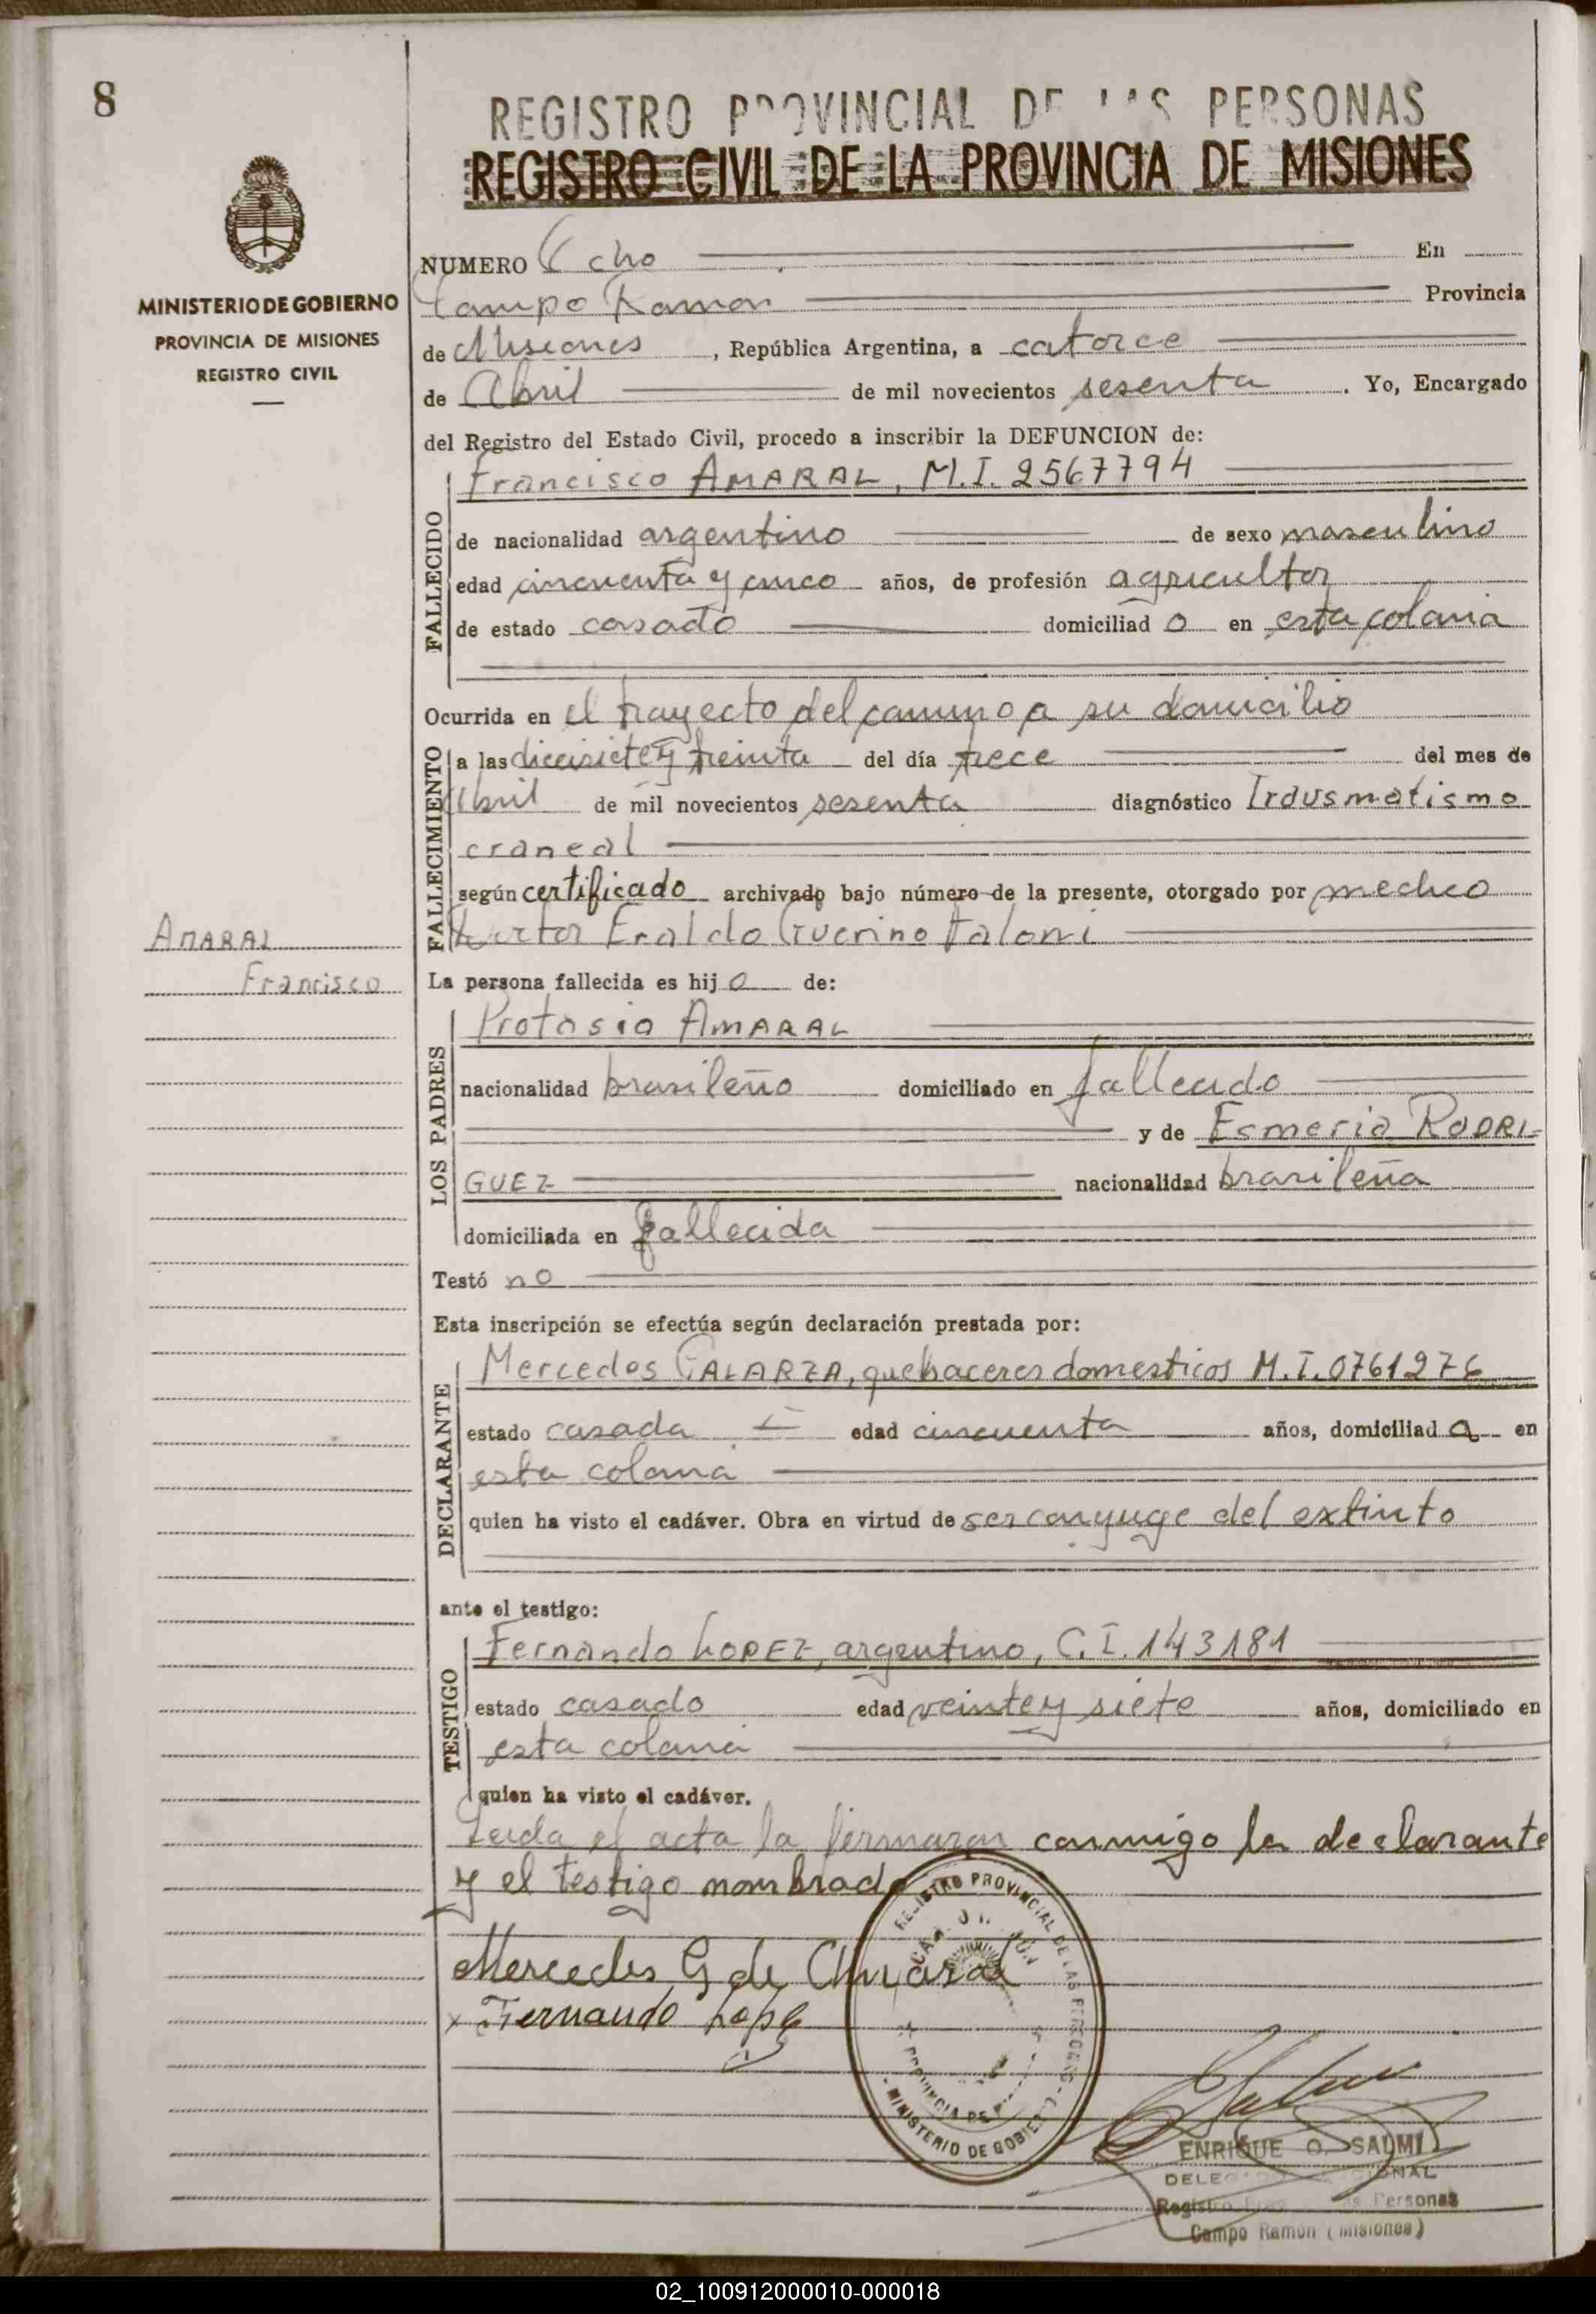 8
REGISTRO PROVINCIAL DE LAS PERSONAS
REGISTRO CIVIL DE LA PROVINCIA DE MISIONES
MINISTERIO DE GOBIERNO
PROVINCIA DE MISIONES
REGISTRO CIVIL
NUMERO Ocho En
Campo Ramon Provincia
de Misiones, República Argentina, a catorce
de Abril de mil novecientos sesenta. Yo, Encargado
del Registro del Estado Civil, procedo a inscribir la DEFUNCION de:
FALLECIDO
Francisco AMARAL, M.I. 2567794
de nacionalidad argentino de sexo masculino
edad cincuenta y cinco años, de profesión agricultor
de estado casado domiciliad o en esta colonia
Ocurrida en el trayecto del camino a su domicilio
FALLECIMIENTO
a las diecisiete y treinta del día trece del mes de
Abril de mil novecientos sesenta diagnóstico Trausmatismo
craneal
según certificado archivado bajo número de la presente, otorgado por medico
Eraldo Guerino Faloni
AMARAL
Francisco
La persona fallecida es hij o de:
LOS PADRES
Protasio AMARAL
nacionalidad brasileño domiciliado en fallecido
y de Esmeria RODRI-
GUEZ nacionalidad brasileña
domiciliada en fallecida
Testó no
Esta inscripción se efectúa según declaración prestada por:
DECLARANTE
Mercedes GALARZA, quehaceres domesticos M.I. 0761276
estado casada edad cincuenta años, domiciliad a en
esta colonia
quien ha visto el cadáver. Obra en virtud de ser conyuge del extinto
ante el testigo:
TESTIGO
Fernando LOPEZ, argentino, C.I. 143181
estado casado edad veinte y siete años, domiciliado en
esta colonia
quien ha visto el cadáver.
Leida el acta la firmaron conmigo la declarante
y el testigo nombrado
Mercedes G de Amaral
x Fernando Lope
REGISTRO PROVINCIAL DE LAS PERSONAS
PROVINCIA DE
MINISTERIO DE GOBIERNO
ENRIQUE O. SALMI
Registro Personas
Campo Ramón (Misiones)
02_100912000010-000018